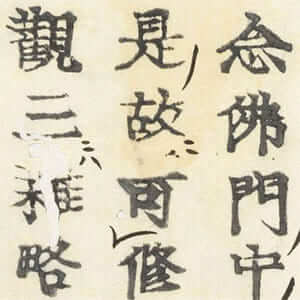 念佛門中
是故可修
觀三雜略